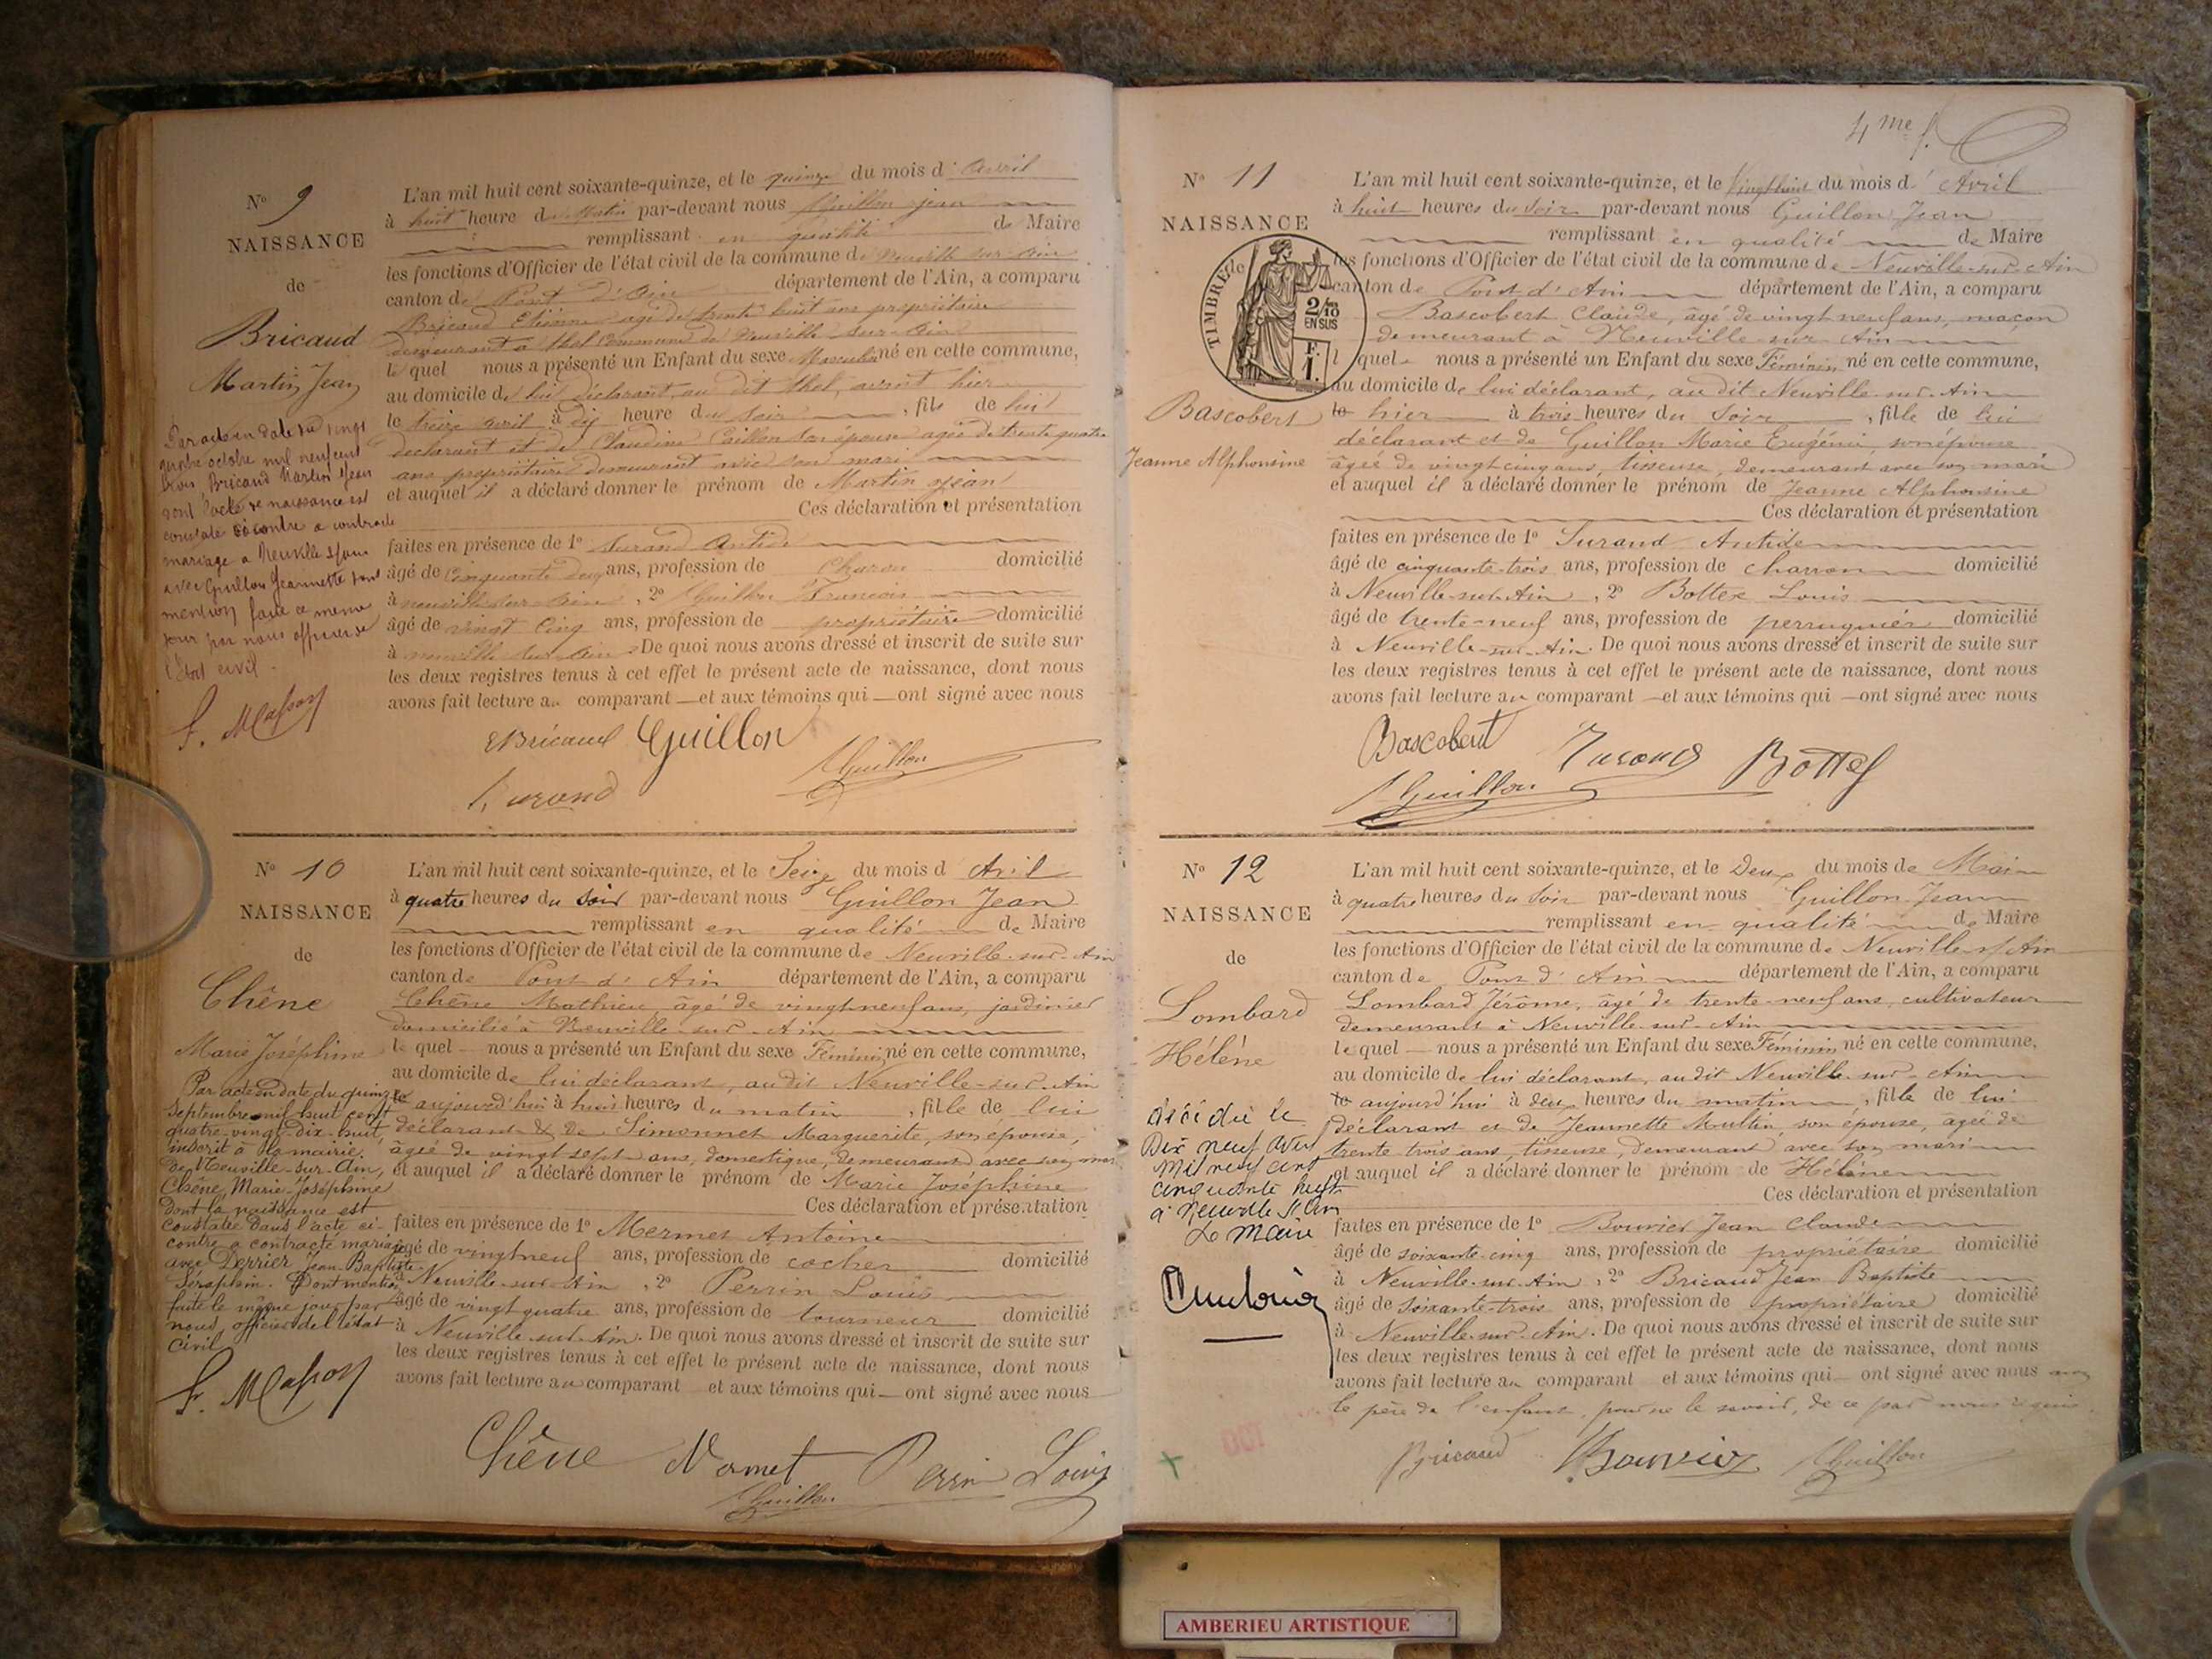 Nº 9
NAISSANCE
de
Bricaud
Martin Jean
Par acte en date du vingt
quatre octobre mil neuf cent
trois Bricaud Martin Jean
dont l'acte de naissance est
constaté ci contre a contracté
mariage a Neuville s/ain
avec Guillon Jeannette dont
mention faite ce meme
jour par nous officier de
l'état civil.
F. Masson
L'an mil huit cent soixante-quinze, et le quinze du mois d'Avril
à huit heure du Matin par-devant nous Guillon jean
remplissant en qualité de Maire
les fonctions d'Officier de l'état civil de la commune de Neuville sur Ain
canton de Pont d'Ain département de l'Ain, a comparu
Bricaud Etienne agé de trente huit ans propriétaire
demeurant a thol Commune de Neuville sur Ain
le quel nous a présenté un Enfant du sexe Masculin né en cette commune,
au domicile de lui déclarant au dit thol, avant hier
le treize avril à dix heure du soir, fils de lui
declarant et de Claudine Caillon son épouse agée de trente quatre
ans propriétaire demeurant avec son mari
et auquel il a déclaré donner le prénom de Martin Jean
Ces déclaration et présentation
faites en présence de 1º Durand Antide
âgé de Cinquante deux ans, profession de Charon domicilié
à neuville sur Ain, 2º Guillon Francois
âgé de vingt Cinq ans, profession de propriétaire domicilié
à neuville sur ain De quoi nous avons dressé et inscrit de suite sur
les deux registres tenus à cet effet le présent acte de naissance, dont nous
avons fait lecture au comparant et aux témoins qui ont signé avec nous
EBricaud Guillon
Durand Guillon
Nº 10
NAISSANCE
de
Chêne
Marie Joséphine
Par acte en date du quinze
Septembre mil huit cent
quatre-vingt-dix-huit,
inscrit à la mairie
de Neuville-sur-Ain,
Chêne, Marie-Joséphine
dont la naissance est
constatée dans l'acte ci-
contre a contracté mariage
avec Derrier Jean-Baptiste
Séraphin. Dont mention
faite le même jour par
nous, officier de l'état
civil
F. Masson
L'an mil huit cent soixante-quinze, et le Seize du mois d Avril
à quatre heures du Soir par-devant nous Guillon Jean
remplissant en qualité de Maire
les fonctions d'Officier de l'état civil de la commune de Neuville-sur-Ain
canton de Pont d'Ain département de l'Ain, a comparu
Chêne Mathieu âgé de vingt neuf ans, jardinier
domicilié à Neuville-sur-Ain
le quel nous a présenté un Enfant du sexe Féminin né en cette commune,
au domicile de lui déclarant, au dit Neuville-sur-Ain
le aujourd'hui à huit heures du matin, fille de lui
déclarant & de Simonnet Marguerite, son épouse,
âgée de vingt sept ans, domestique, demeurant avec son mari
et auquel il a déclaré donner le prénom de Marie Joséphine
Ces déclaration et présentation
faites en présence de 1º Mermet Antoine
âgé de vingt neuf ans, profession de cocher domicilié
à Neuville-sur-Ain, 2º Perrin Louis
âgé de vingt quatre ans, profession de tourneur domicilié
à Neuville-sur-Ain. De quoi nous avons dressé et inscrit de suite sur
les deux registres tenus à cet effet le présent acte de naissance, dont nous
avons fait lecture au comparant et aux témoins qui ont signé avec nous
Chêne Mermet Perrin Louis
Guillon
4me f.
Nº 11
NAISSANCE
TIMBRE de
2/10
EN SUS
F.
1.
Bascobert
Jeanne Alphonsine
L'an mil huit cent soixante-quinze, et le Vingt huit du mois d'Avril
à huit heures du Soir par-devant nous Guillon Jean
remplissant en qualité de Maire
les fonctions d'Officier de l'état civil de la commune de Neuville-sur-Ain
canton de Pont d'Ain département de l'Ain, a comparu
Bascobert Claude, âgé de vingt neuf ans, maçon
demeurant à Neuville-sur-Ain
l quel nous a présenté un Enfant du sexe Féminin né en cette commune,
au domicile de lui déclarant, au dit Neuville-sur-Ain
le hier à trois heures du Soir, fille de lui
déclarant et de Guillon Marie Eugénie, son épouse
âgée de vingt cinq ans, tisseuse, demeurant avec son mari
et auquel il a déclaré donner le prénom de Jeanne Alphonsine
Ces déclaration et présentation
faites en présence de 1º Durand Antide
âgé de cinquante-trois ans, profession de charron domicilié
à Neuville-sur-Ain, 2º Bottex Louis
âgé de trente-neuf ans, profession de perruquier domicilié
à Neuville-sur-Ain. De quoi nous avons dressé et inscrit de suite sur
les deux registres tenus à cet effet le présent acte de naissance, dont nous
avons fait lecture au comparant et aux témoins qui ont signé avec nous
Bascobert Durand Bottex
Guillon
Nº 12
NAISSANCE
de
Lombard
Hélène
décédée le
Dix neuf Avril
Mil neuf cent
cinquante huit
à Neuville s/Ain
Le Maire
L'an mil huit cent soixante-quinze, et le Deux du mois de Mai
à quatre heures du Soir par-devant nous Guillon Jean
remplissant en qualité de Maire
les fonctions d'Officier de l'état civil de la commune de Neuville s/Ain
canton de Pont d'Ain département de l'Ain, a comparu
Lombard Jérôme, âgé de trente-neuf ans, cultivateur
demeurant à Neuville-sur-Ain
le quel nous a présenté un Enfant du sexe Féminin né en cette commune,
au domicile de lui déclarant, au dit Neuville-sur-Ain
le aujourd'hui à deux heures du matin, fille de lui
déclarant et de Jeannette Moultin, son épouse, âgée de
trente trois ans, tisseuse, demeurant avec son mari
et auquel il a déclaré donner le prénom de Hélène
Ces déclaration et présentation
faites en présence de 1º Bouvier Jean Claude
âgé de soixante-cinq ans, profession de propriétaire domicilié
à Neuville-sur-Ain, 2º Bricaud Jean Baptiste
âgé de Soixante-trois ans, profession de propriétaire domicilié
à Neuville-sur-Ain. De quoi nous avons dressé et inscrit de suite sur
les deux registres tenus à cet effet le présent acte de naissance, dont nous
avons fait lecture au comparant et aux témoins qui ont signé avec nous non
le père de l'enfant, pour ne le savoir, de ce par nous requis.
Bricaud Bouvier Guillon
OCT
AMBERIEU ARTISTIQUE